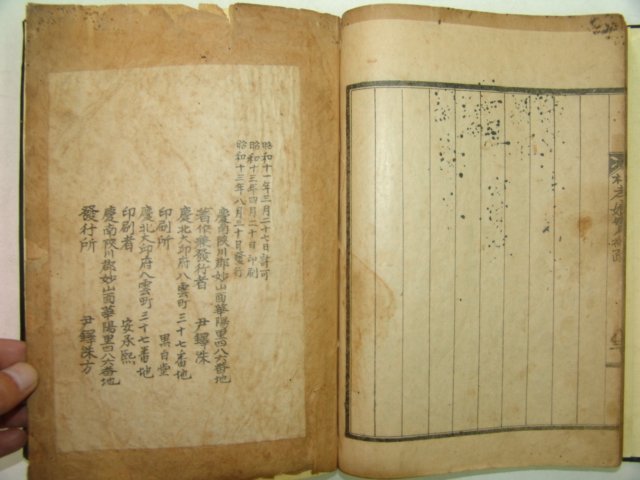 昭和十一年三月二十七日許可
昭和十三年四月二十日印刷
昭和十三年八月二十日發行
慶南陜川郡妙山面華陽里四八六番地
著作兼發行者 尹鐸洙
慶北大邱府八雲町三十七番地
印刷所 黑白堂
慶北大邱府八雲町三十七番地
印刷者 安承熙
慶南陜川郡妙山面華陽里四八六番地
發行所 尹鐸洙方